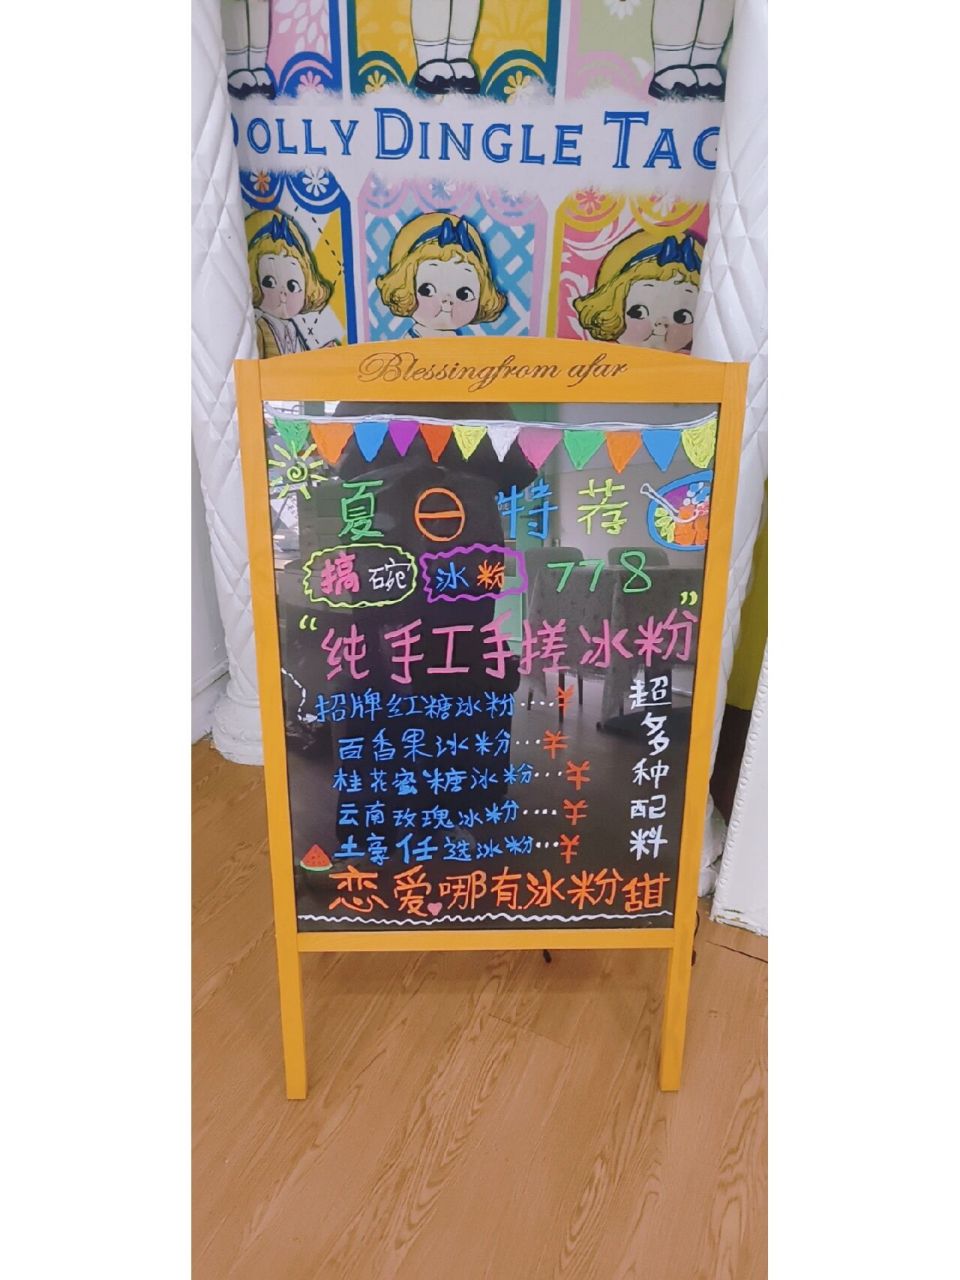 DOLLY DINGLE TAG
Blessingfrom afar
夏日特荐
搞碗 冰粉 778
“纯手工手搓冰粉”
招牌红糖冰粉....¥
百香果冰粉...¥
桂花蜜糖冰粉...¥
云南玫瑰冰粉....¥
土豪任选冰粉...¥
超多种配料
恋爱哪有冰粉甜